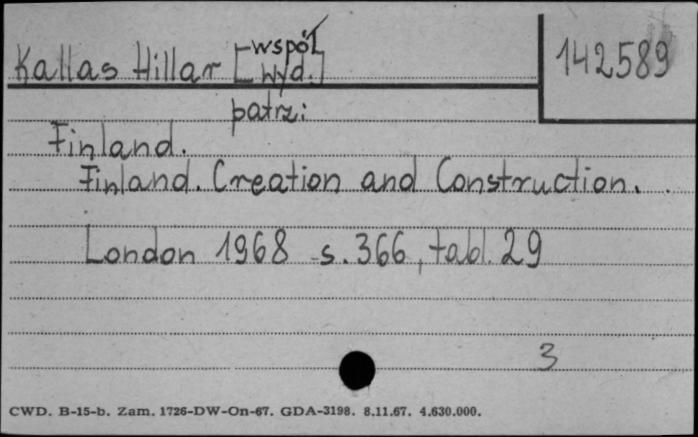 Kallas Hillar [współ. wyd.]
142589
patrz:
Finland.
Finland. Creation and Construction.
London 1968 s. 366, tabl. 29
3
CWD. B-15-b. Zam. 1726-DW-On-67. GDA-3198. 8.11.67. 4.630.000.